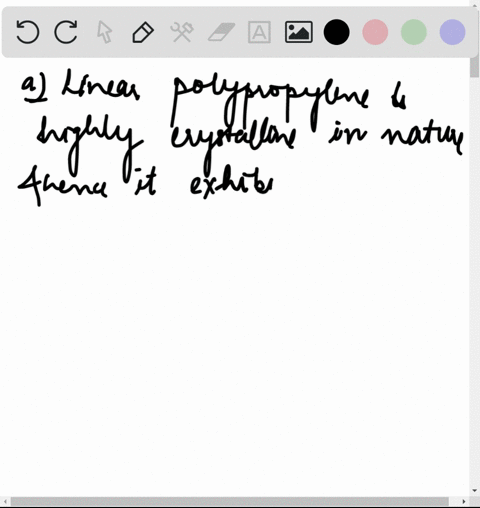 a) Linear polypropylene is
highly crystalline in nature
& hence it exhibi